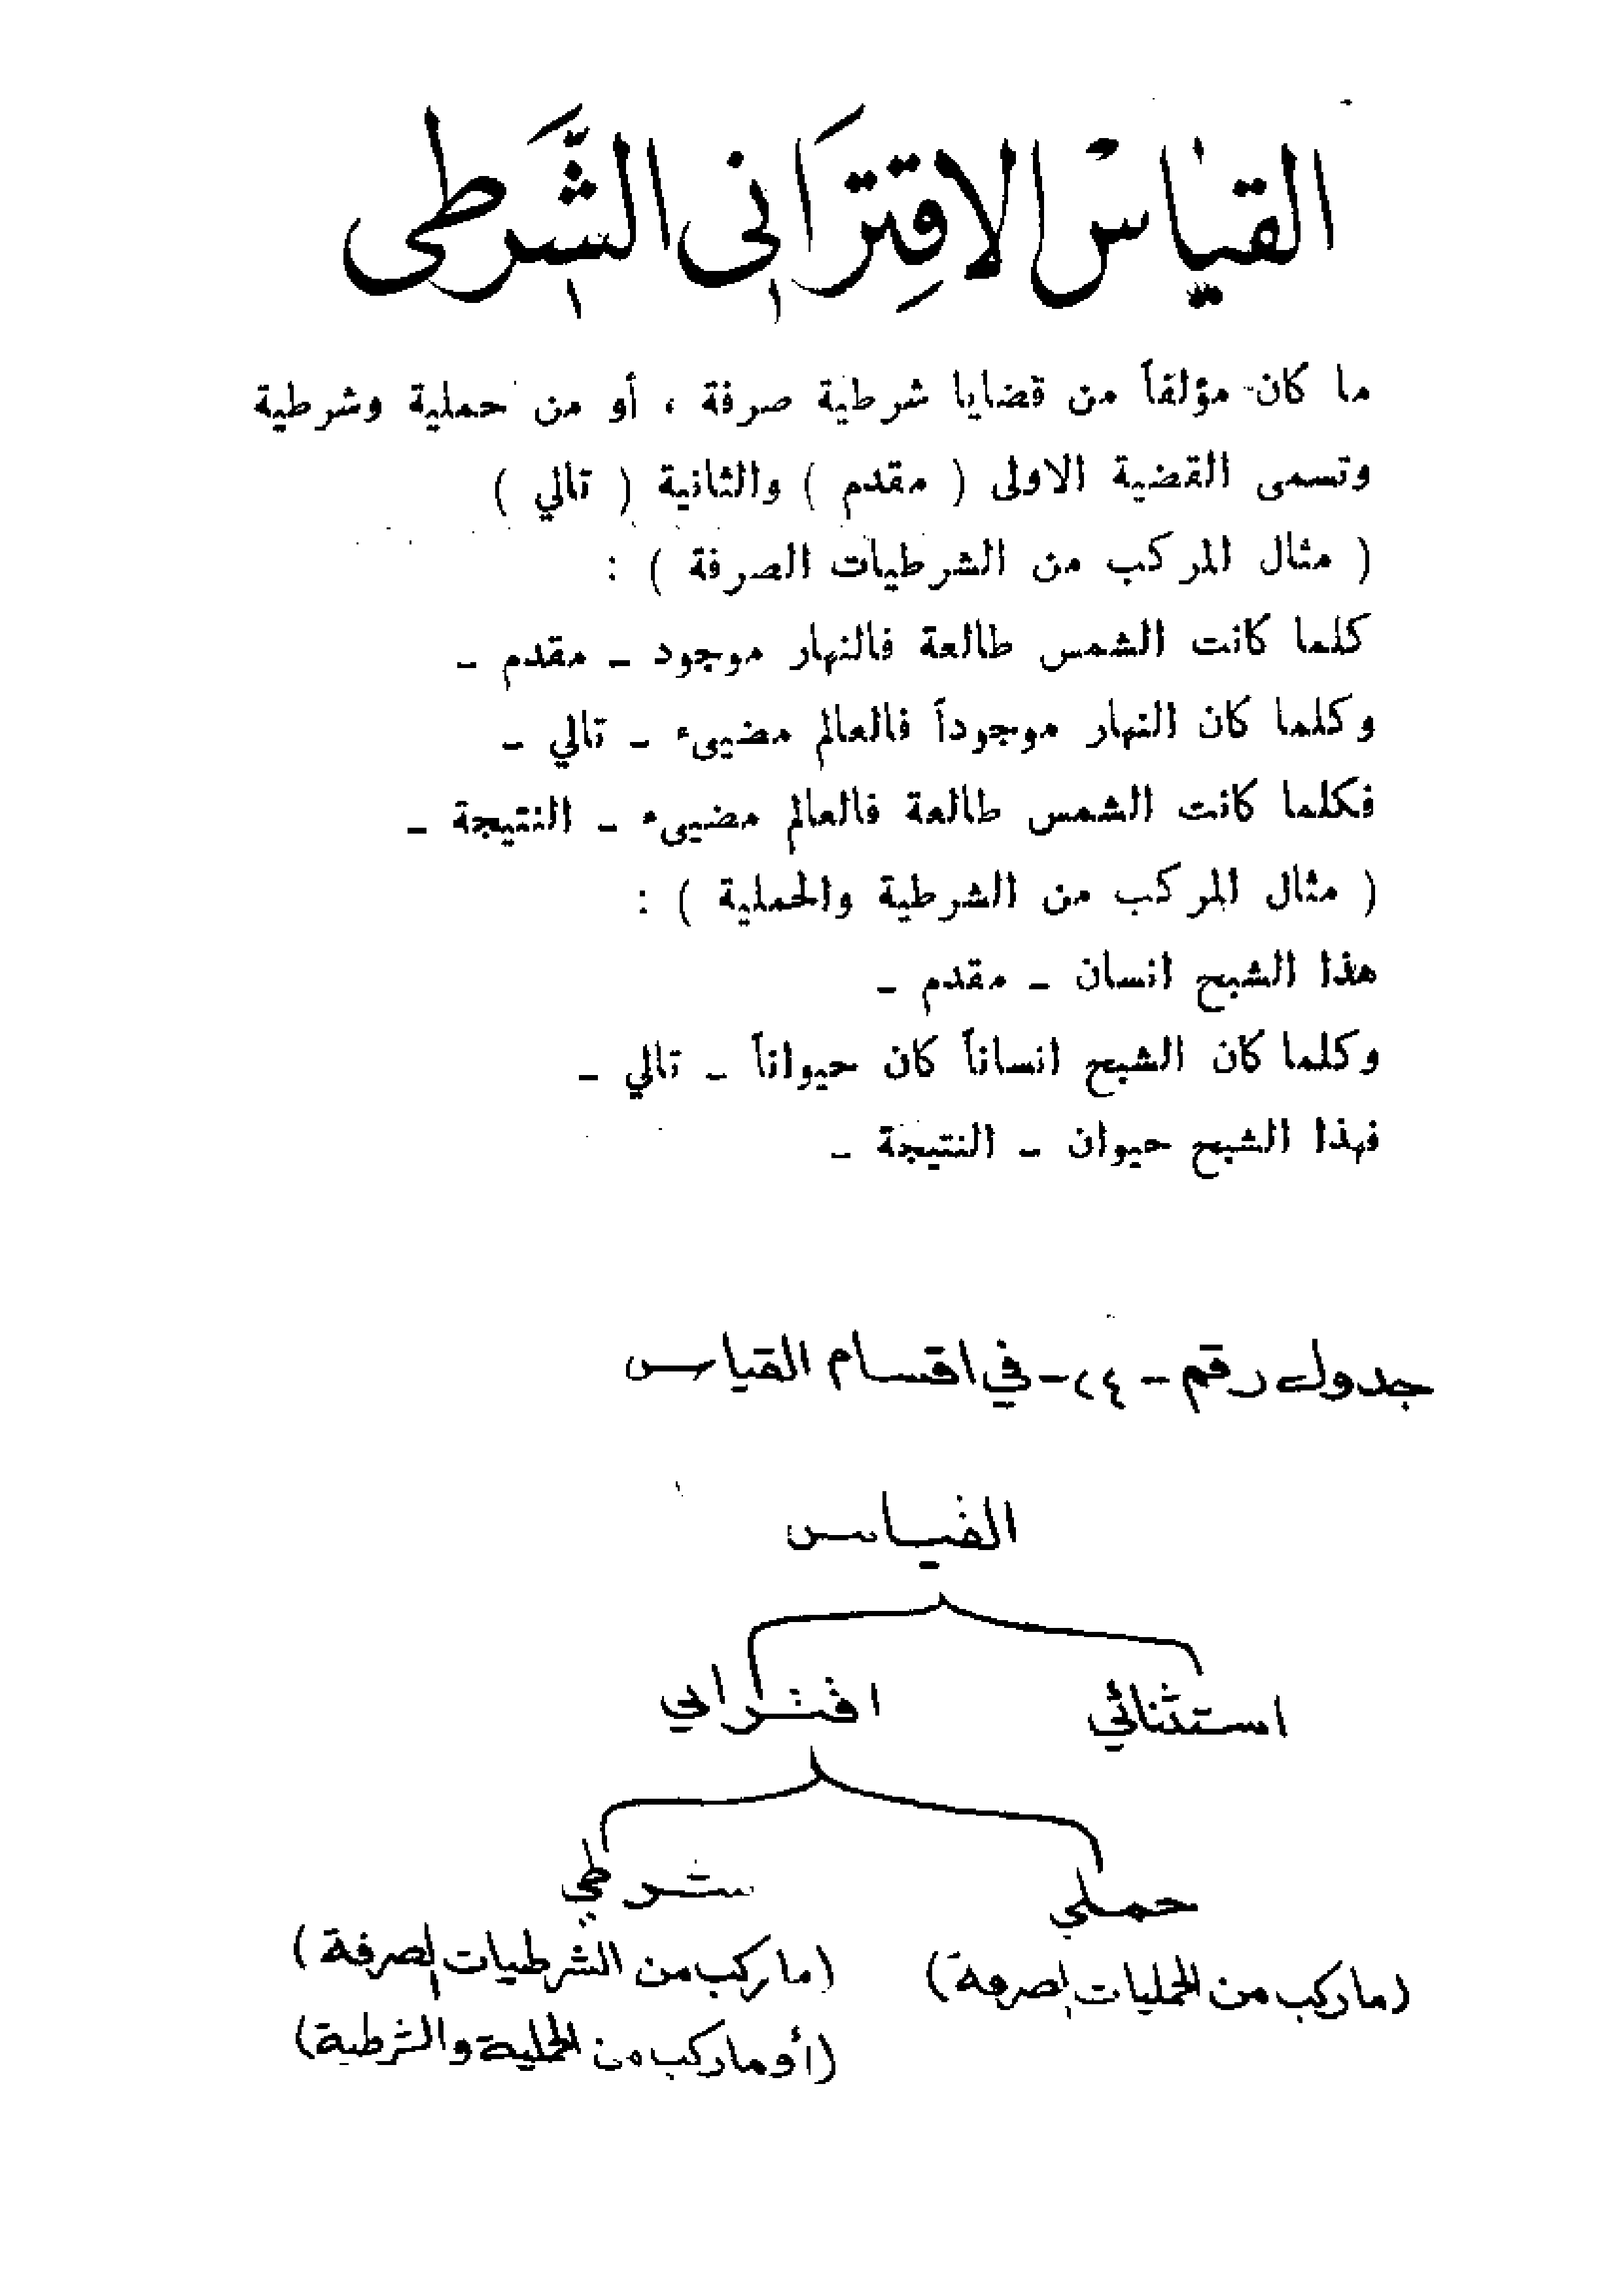 القياس الاقتراني الشرطي
ما كان مؤلفاً من قضايا شرطية صرفة ، أو من حملية وشرطية
وتسمى القضية الاولى ( مقدم ) والثانية ( تالي )
( مثال المركب من الشرطيات الصرفة ) :
كلما كانت الشمس طالعة فالنهار موجود ــ مقدم ــ
وكلما كان النهار موجوداً فالعالم مضيىء ــ تالي ــ
فكلما كانت الشمس طالعة فالعالم مضيىء ــ النتيجة ــ
( مثال المركب من الشرطية والحملية ) :
هذا الشبح انسان ــ مقدم ــ
وكلما كان الشبح انساناً كان حيواناً ــ تالي ــ
فهذا الشبح حيوان ــ النتيجة ــ
جدول رقم - ٢٤ - في اقسام القياس
القياس
استثنائي اقتراني
حملي شرطي
(ما ركب من الحمليات الصرفة) (ما ركب من الشرطيات الصرفة)
(أو ما ركب من الحملية والشرطية)